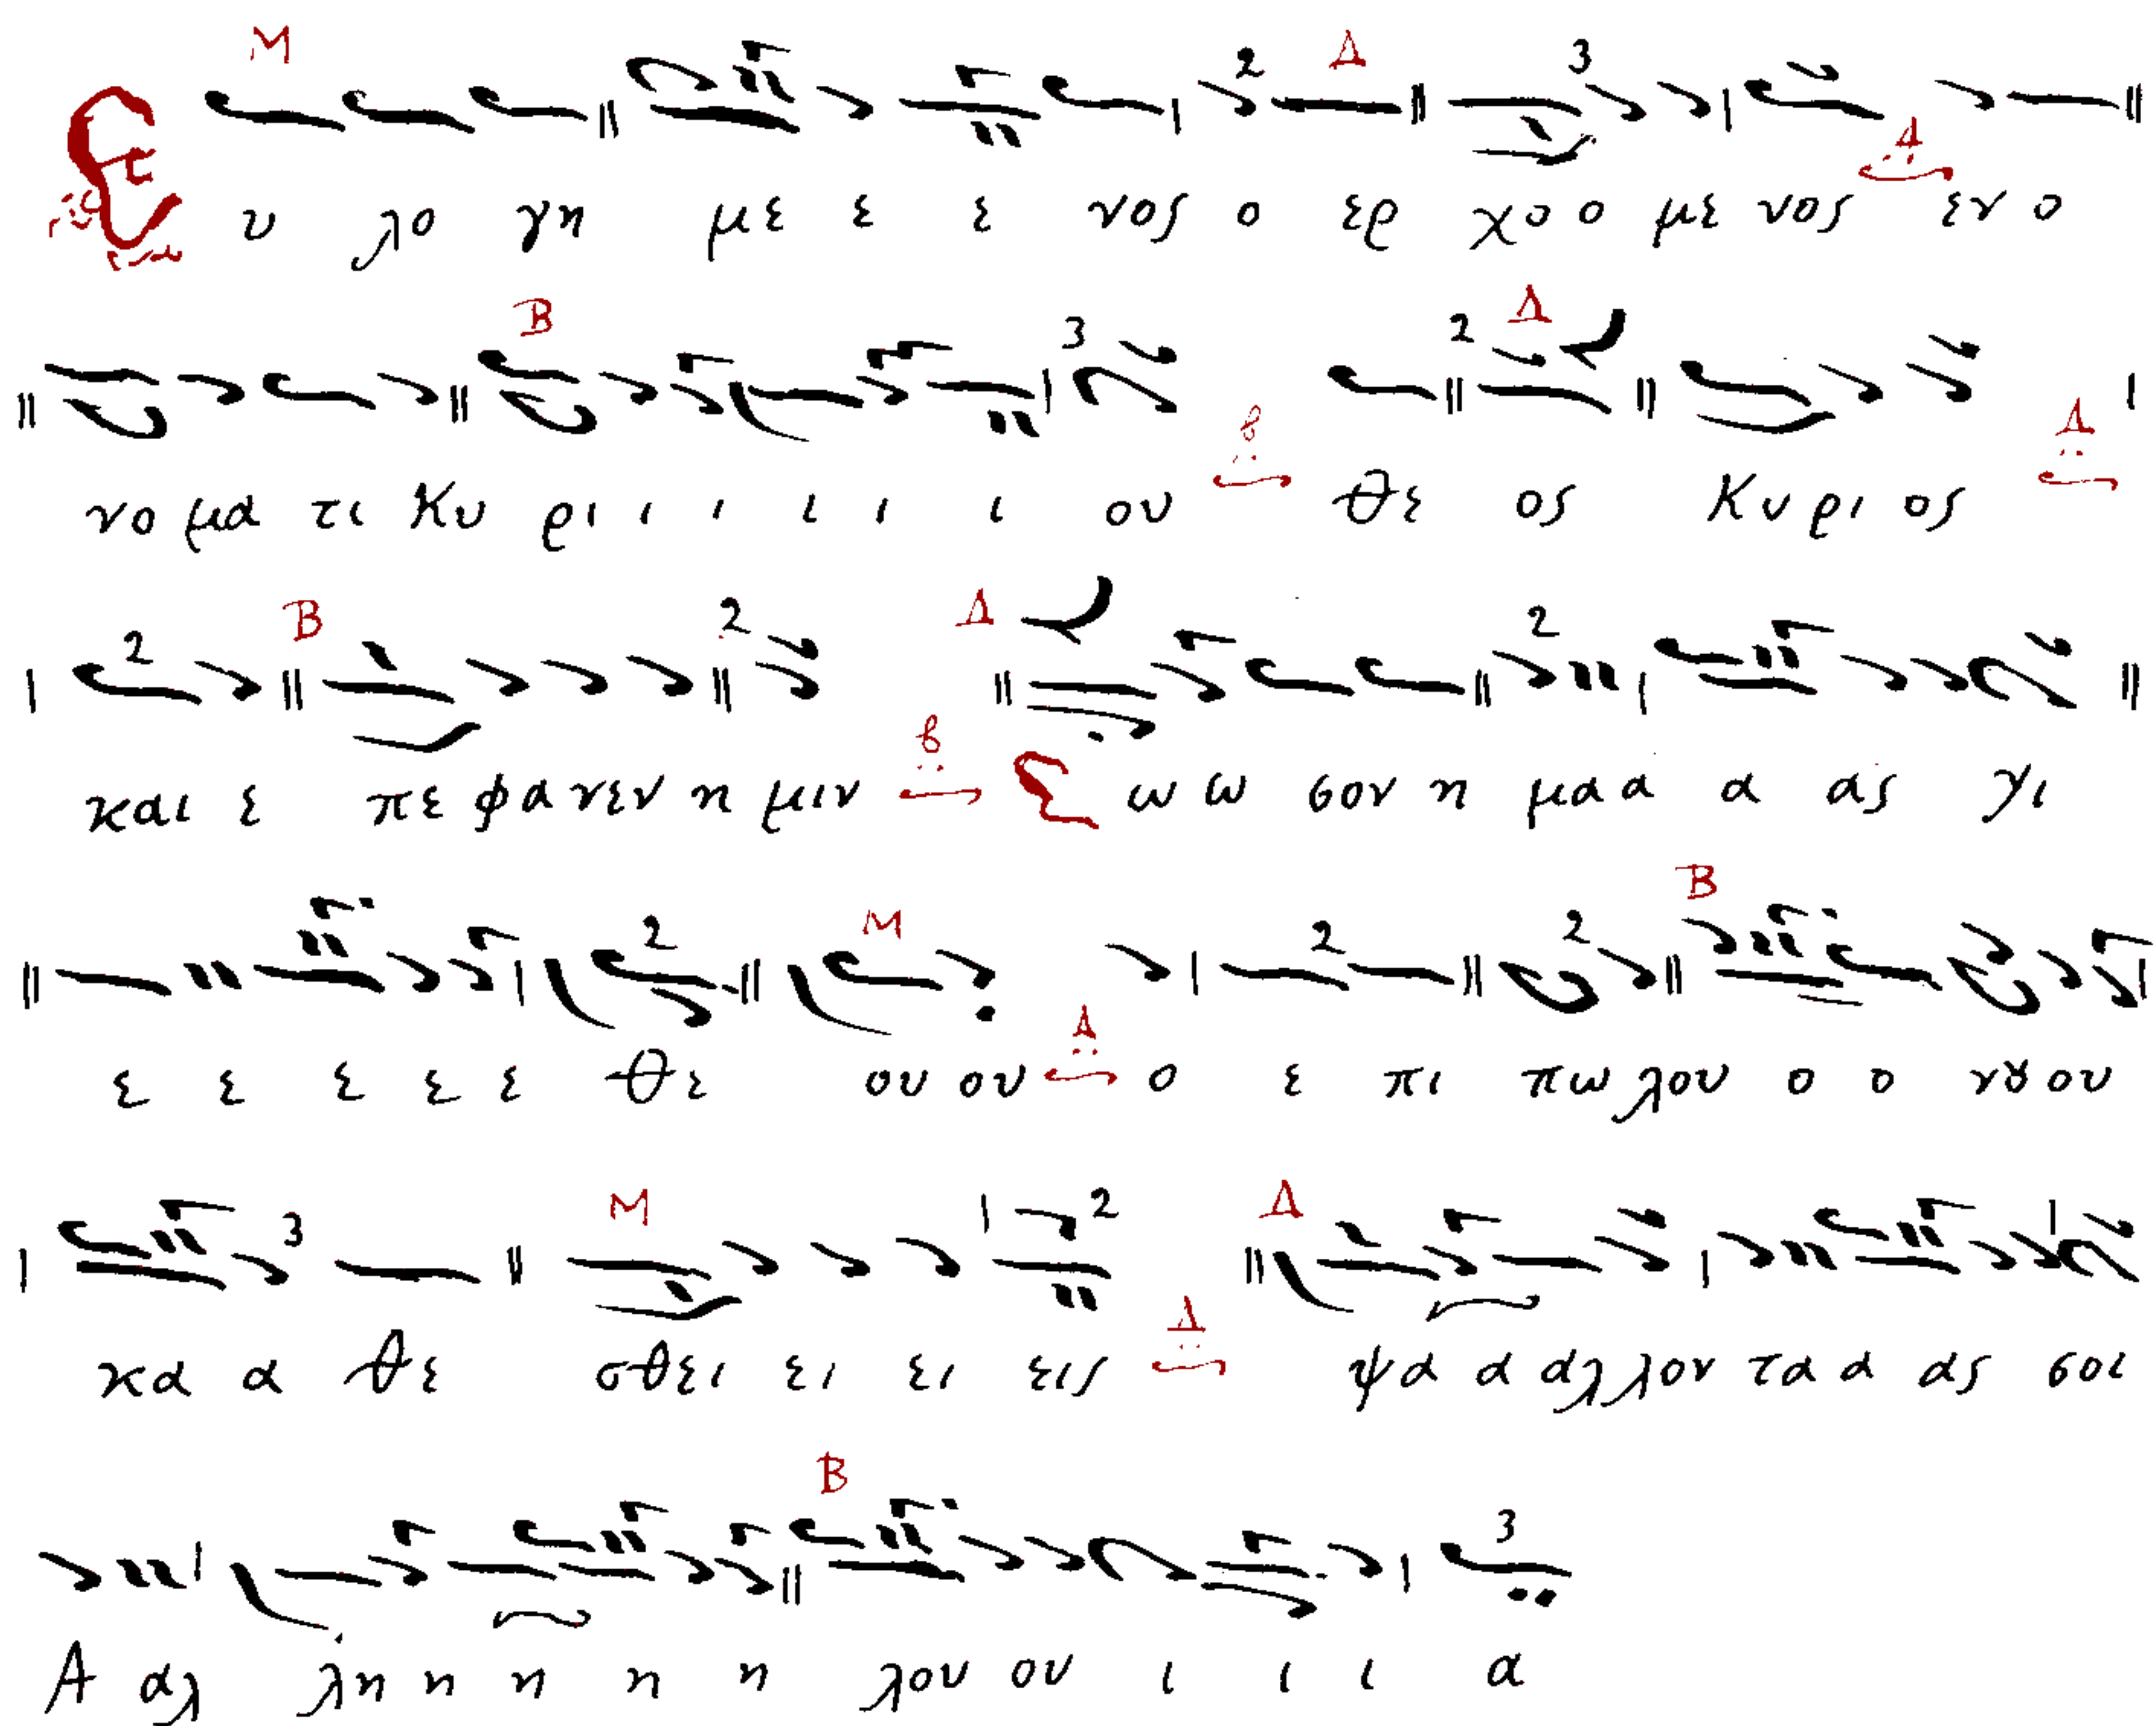 Ευ λο γη με ε ε νος ο ερ χο ο με νος εν ο
νο μα τι Κυ ρι ι ι ι ι ι ου Θε ος Κυ ρι ος
και ε πε φα νεν η μιν Σω ω σον η μα α α ας γι
ε ε ε ε ε Θε ου ου ο ε πι πω λου ο ο νȣ ου
κα α θε σθει ει ει εις ψα α αλ λον τα α ας σοι
Α αλ λη η η η η λου ου ι ι ι α